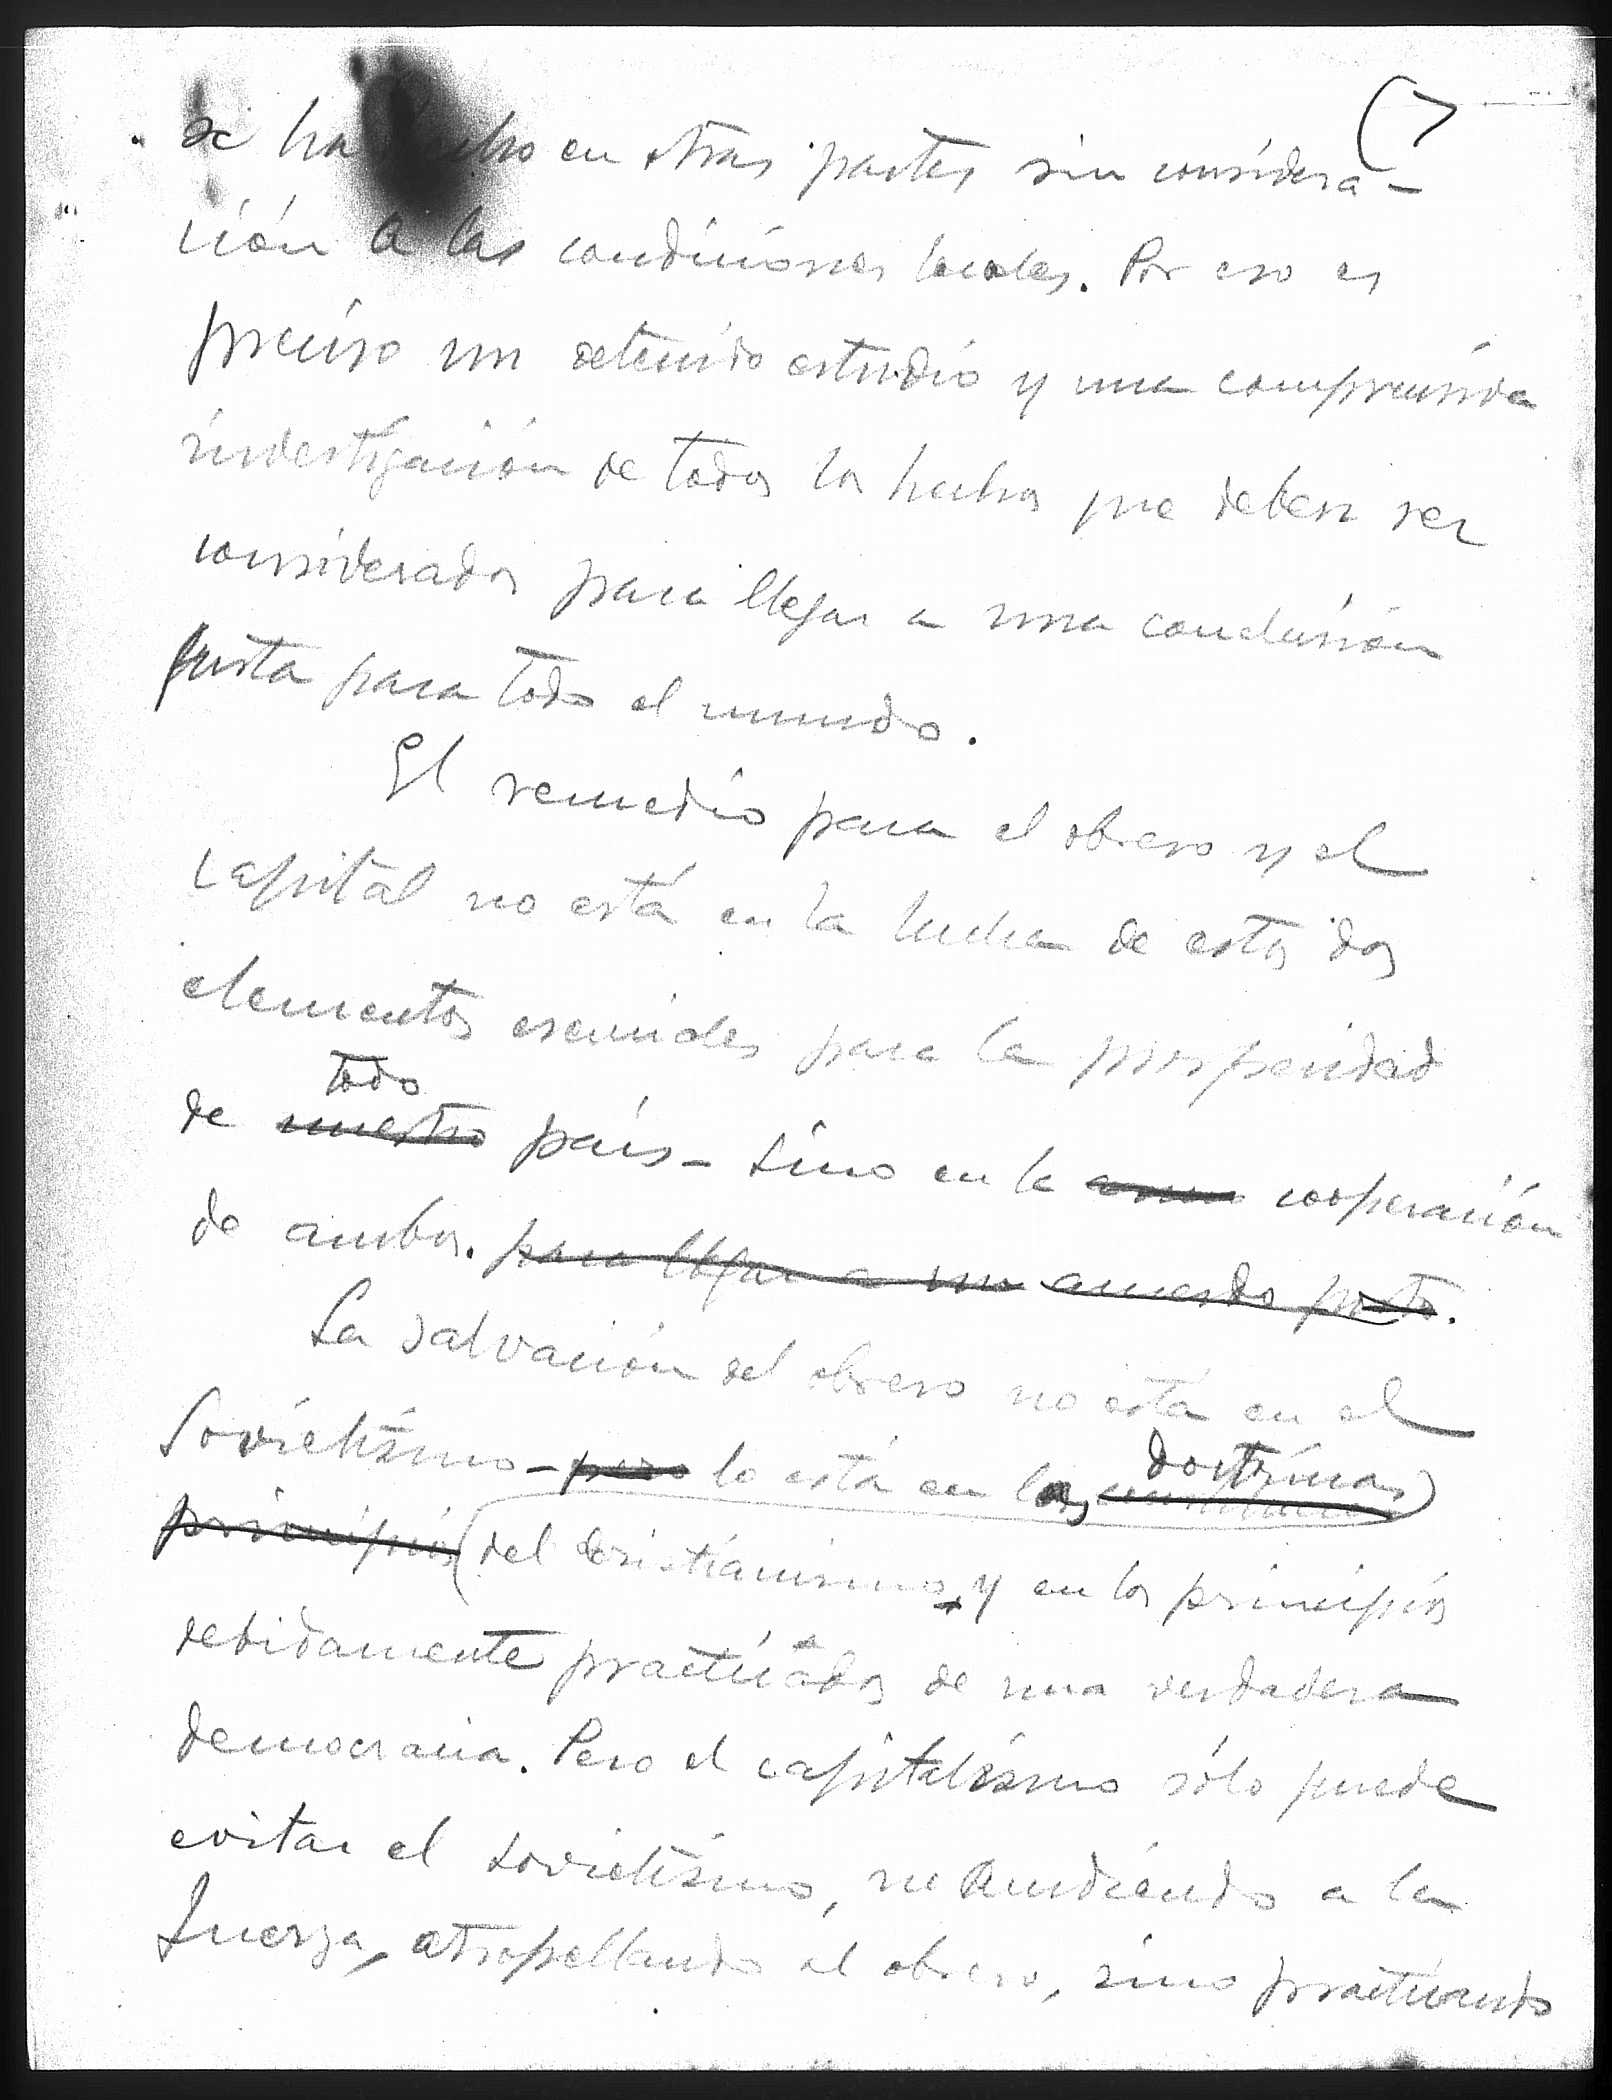 (7
se ha hecho en otras partes sin considera-
ción a las condiciones locales. Por eso es
preciso un detenido estudio y una comprensiva
investigación de todos los hechos que deben ser
considerados para llegar a una conclusión
justa para todo el mundo.
El remedio para el obrero y el
capital no está en la lucha de estos dos
elementos esenciales para la prosperidad
todo
de nuestro país - sino en la cooperación
de ambos. para llegar a un acuerdo justo.
La salvación del obrero no está en el
doctrinas
Sovietismo - pero lo está en las
principios del Cristianismo, y en los principios
debidamente practicados de una verdadera
democracia. Pero el capitalismo sólo puede
evitar el sovietismo, no acudiendo a la
fuerza, atropellando al obrero, sino practicando